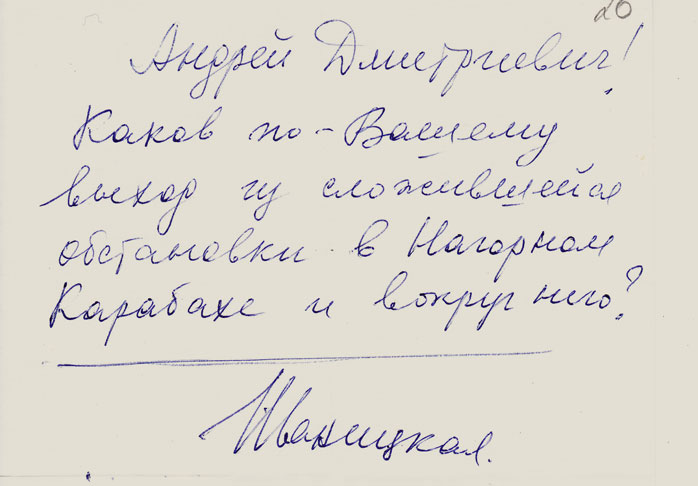 20
Андрей Дмитриевич!
Каков по-Вашему
выход из сложившейся
обстановки в Нагорном
Карабахе и вокруг него?